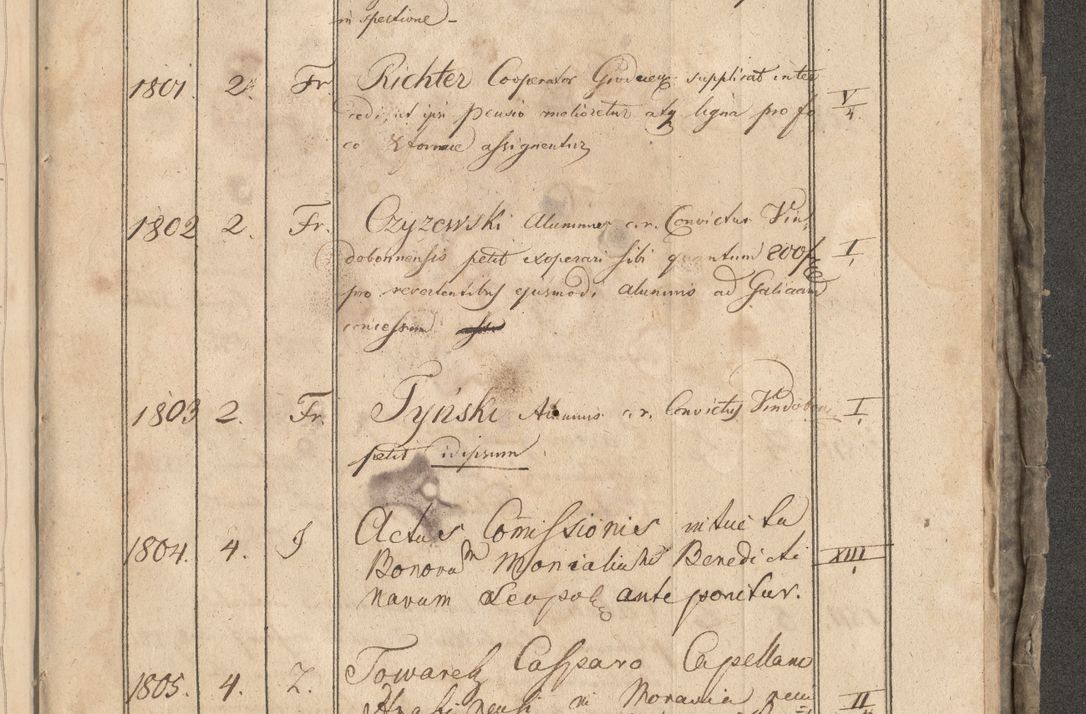 in spectione -
1801. 2. Fr Richter Cooperator supplicat inter
cedi, ut ipsi pensio melioretur atq ligna pro fo
co assignentur
V
4
1802 2. Fr. Czyzewski Alumnus c. r. Convictus Vin
dobonnensis petit exoperari sibi quantum 200 f
pro revertentibus ejusmodi alumnis ad Galiciam
concessum
I
1803 2. Fr. Tyński Alumnus c. r. Convictus Vindobon
petit idipsum
I
1804. 4. J Actus Comissionis intuitu
Bonorum Monialium Benedicti
narum Leopol ante ponitur.
XIII
1805. 4. Z. Casparo Capellano
in Moravia
II